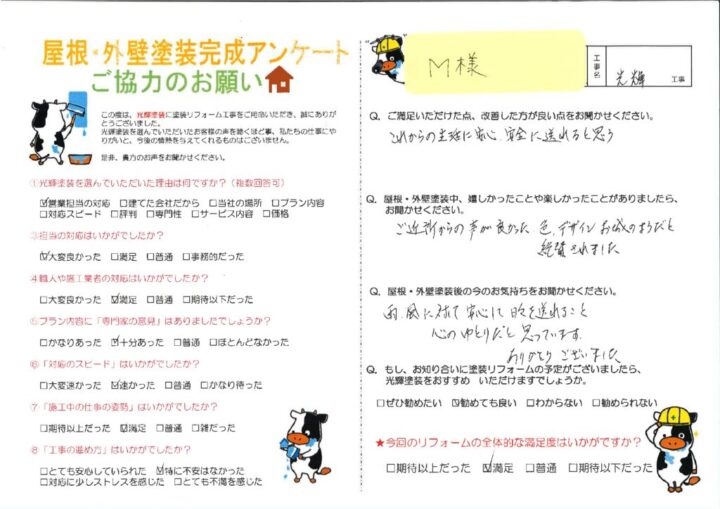 屋根・外壁塗装完成アンケート
ご協力のお願い
この度は、光輝塗装に塗装リフォーム工事をご用命いただき、誠にありが
とうございました。
光輝塗装を選んでいただいたお客様の声を聴くほど事、私たちの仕事にや
りがいと、今後の情熱を与えてくれるものはございません。
是非、貴方のお声をお聞かせください。
①光輝塗装を選んでいただいた理由は何ですか？（複数回答可）
☑営業担当の対応 □建てた会社だから □当社の場所 □プラン内容
□対応スピード □評判 □専門性 □サービス内容 □価格
③担当の対応はいかがでしたか？
☑大変良かった □満足 □普通 □事務的だった
④職人や施工業者の対応はいかがでしたか？
□大変良かった ☑満足 □普通 □期待以下だった
⑤プラン内容に「専門家の意見」はありましたでしょうか？
□かなりあった ☑十分あった □普通 □ほとんどなかった
⑥「対応のスピード」はいかがでしたか？
□大変速かった ☑速かった □普通 □かなり待った
⑦「施工中の仕事の姿勢」はいかがでしたか？
□期待以上だった ☑満足 □普通 □雑だった
⑧「工事の進め方」はいかがでしたか？
□とても安心していられた ☑特に不安はなかった
□対応に少しストレスを感じた □とても不満を感じた
M様
工事名
光輝
工事
Q. ご満足いただけた点、改善した方が良い点をお聞かせください。
これからの生活に安心、安全に送れると思う
Q. 屋根・外壁塗装中、嬉しかったことや楽しかったことがありましたら、
お聞かせください。
ご近所からの声が良かった 色、デザイン お城のようだと
絶賛されました
Q. 屋根・外壁塗装後の今のお気持ちをお聞かせください。
雨、風に対して安心して日々を送れること
心のゆとりだと思っています。
ありがとうございました
Q. もし、お知り合いに塗装リフォームの予定がございましたら、
光輝塗装をおすすめ いただけますでしょうか。
□ぜひ勧めたい ☑勧めても良い □わからない □勧められない
★今回のリフォームの全体的な満足度はいかがですか？
□期待以上だった ☑満足 □普通 □期待以下だった